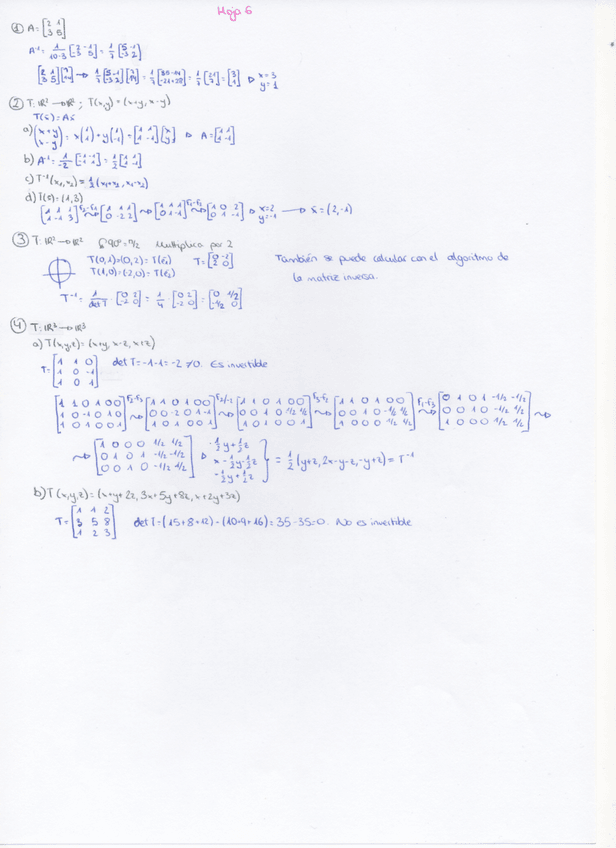 Hoja 6
① A = [2 1; 3 5]
A⁻¹ = 1/(10-3) [2 -1; -3 5] = 1/7 [5 -1; -3 2]
→ 1/7 [5 -1; -3 2] = 1/7 [35-14; -21+28] = 1/7 [21; 7] = [3; 1] ▷ x=3 y=1
② T: ℝ² → ℝ²; T(x,y) = (x+y, x-y)
T(x̄) = Ax̄
a) (x+y; x-y) = x(1; 1) + y(1; -1) = [1 1; 1 -1][x; y] ▷ A = [1 1; 1 -1]
b) A⁻¹ = 1/-2 [-1 -1; -1 1] = 1/2 [1 1; 1 -1]
c) T⁻¹(x₁,x₂) = 1/2 (x₁+x₂, x₁-x₂)
d) = (1,3)
[1 1 1; 1 -1 3] F₂-F₁ [1 1 1; 0 -2 2] ⇝ [1 1 1; 0 1 -1] F₁-F₂ [1 0 2; 0 1 -1] ▷ x=2 y=-1 → x̄ = (2,-1)
③ T: ℝ² → ℝ² 90º = π/2 Multiplica por 2
T(0,1) = T = [0 -2; 2 0]
T(1,0) =
También se puede calcular con el algoritmo de
la matriz inversa.
T⁻¹ = 1/det T [0 2; -2 0] = 1/4 [0 2; -2 0] = [0 1/2; -1/2 0]
④ T: ℝ³ → ℝ³
a) T(x,y,z) = (x+y, x-z, x+z)
T = [1 1 0; 1 0 -1; 1 0 1] det T = -1-1 = -2 ≠ 0. Es invertible
[1 1 0 1 0 0; 1 0 -1 0 1 0; 1 0 1 0 0 1] F₂-F₃ [1 1 0 1 0 0; 0 0 -2 0 1 -1; 1 0 1 0 0 1] F₂/-2 [1 1 0 1 0 0; 0 0 1 0 -1/2 1/2; 1 0 1 0 0 1] F₃-F₂ [1 1 0 1 0 0; 0 0 1 0 -1/2 1/2; 1 0 0 0 1/2 1/2] F₁-F₃ [0 1 0 1 -1/2 -1/2; 0 0 1 0 -1/2 1/2; 1 0 0 0 1/2 1/2] ⇝
⇝ [1 0 0 0 1/2 1/2; 0 1 0 1 -1/2 -1/2; 0 0 1 0 -1/2 1/2] ▷ 1/2 y + 1/2 z; x - 1/2 y - 1/2 z; -1/2 y + 1/2 z } = 1/2 (y+z, 2x-y-z, -y+z) = T⁻¹
b) T(x,y,z) = (x+y+2z, 3x+5y+8z, x+2y+3z)
T = [1 1 2; 3 5 8; 1 2 3] det T = (15+8+12) - (10+9+16) = 35-35 = 0. No es invertible